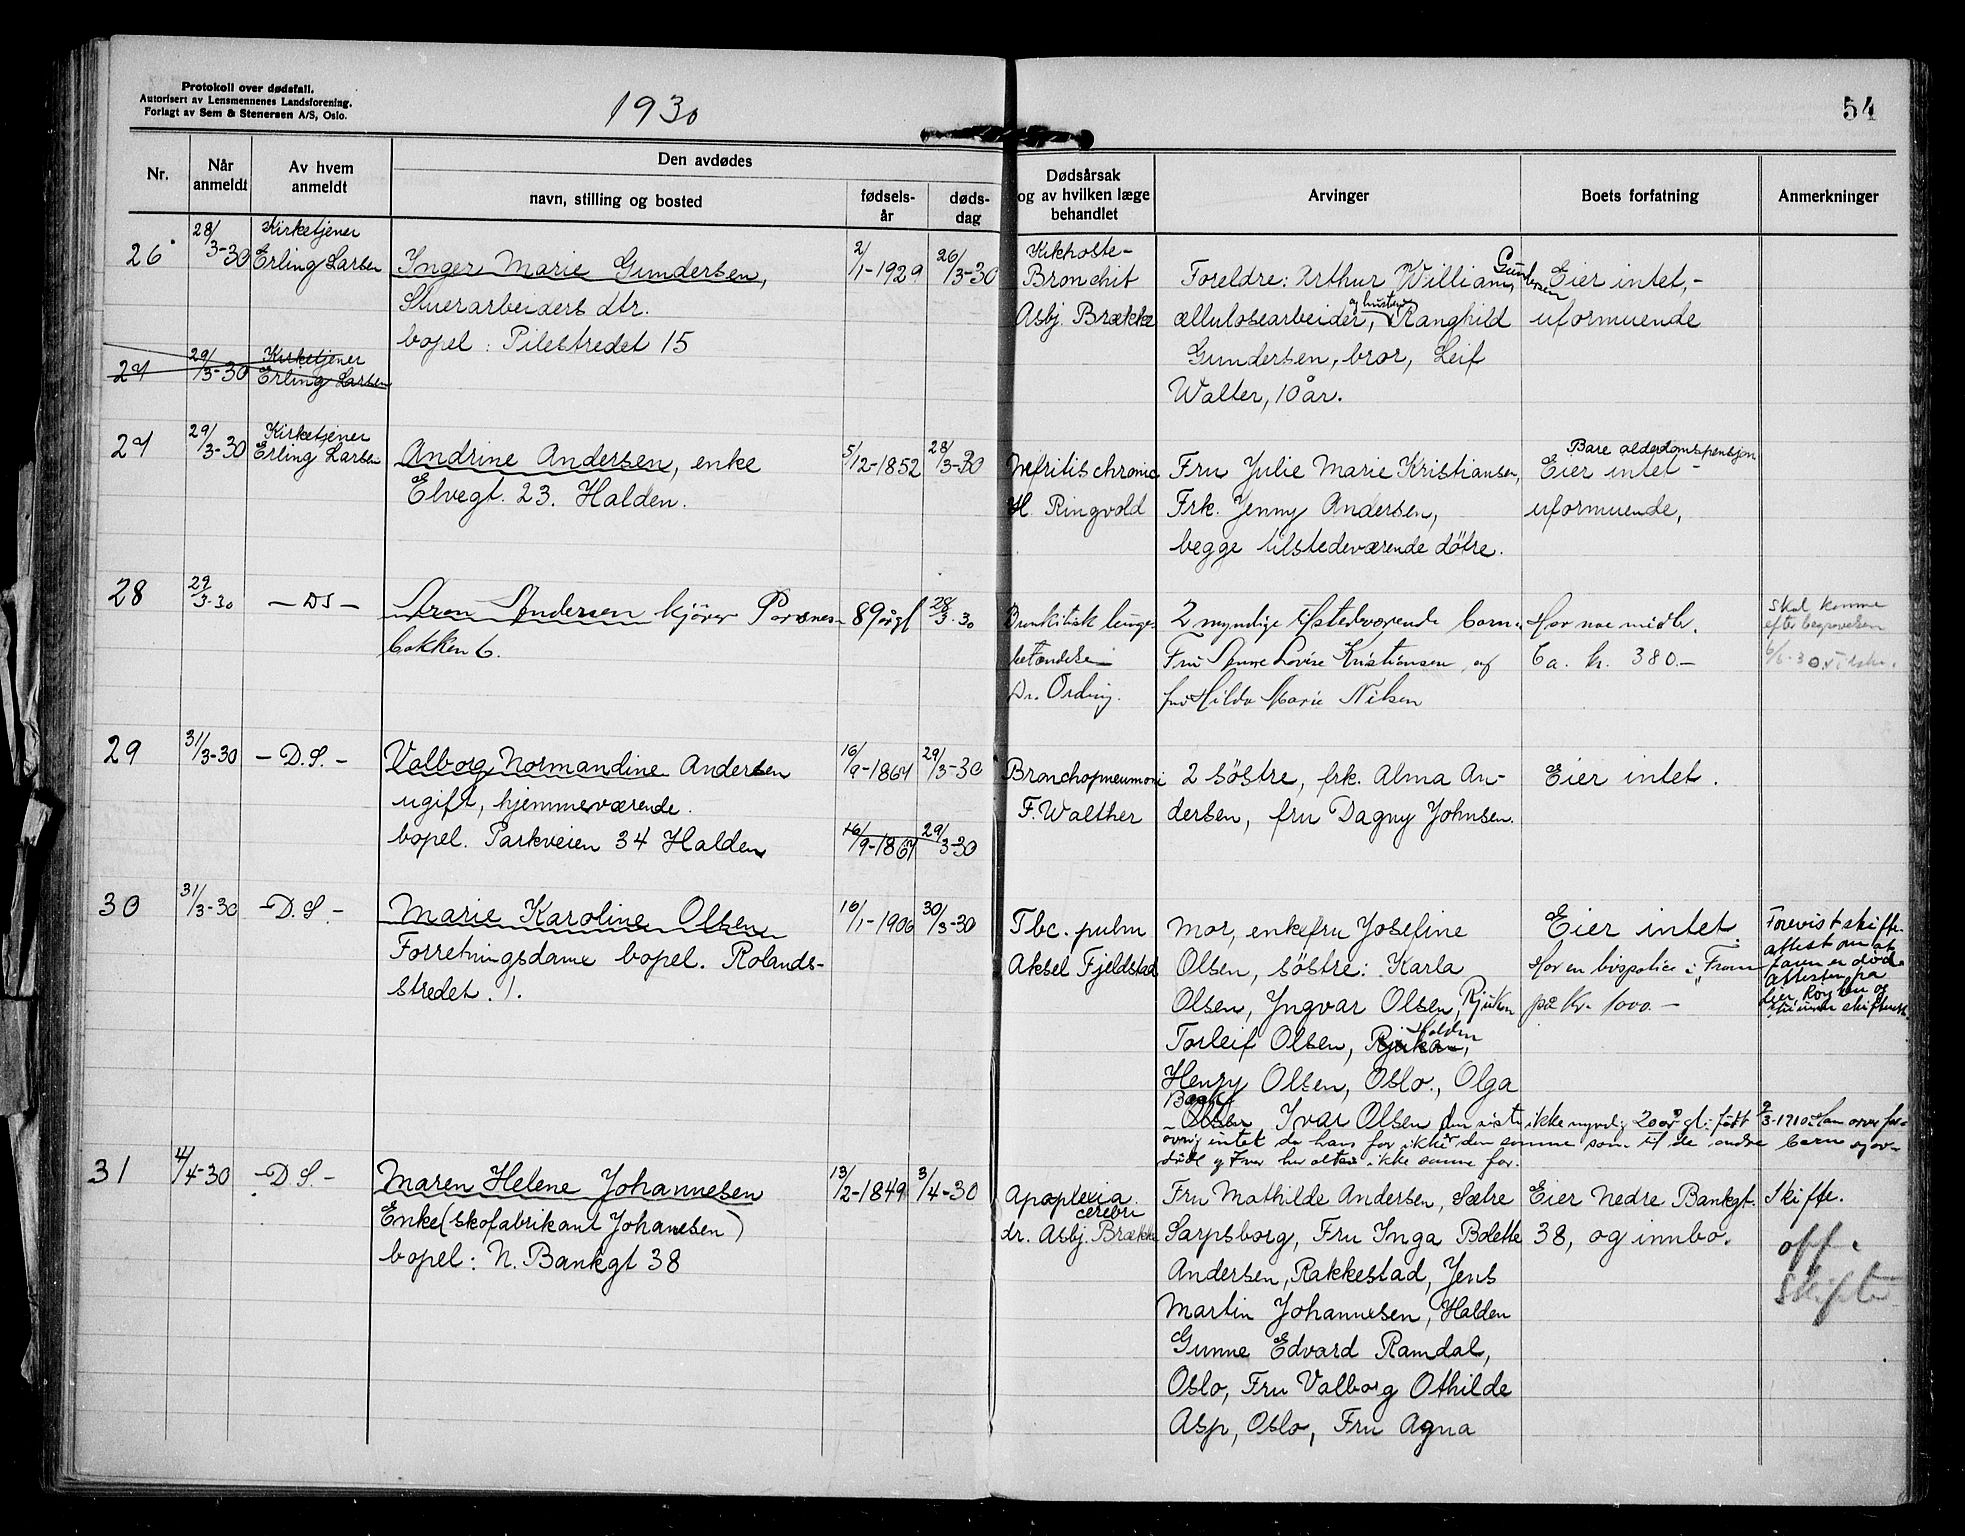 Protokoll over dødsfall.
Autorisert av Lensmennenes Landsforening.
Forlagt av Sem & Stenersen A/S, Oslo.
1930
54
Nr.
Når anmeldt
Av hvem anmeldt
Den avdødes
navn, stilling og bosted
fødselsår
dødsdag
Dødsårsak og av hvilken læge behandlet
Arvinger
Boets forfatning
Anmerkninger
26
28/3-30
Kirketjener
Erling Larsen
Inger Marie Gundersen,
Stuerarbeiders dtr.
bopel: Pilestredet 15
2/1-1929
26/3-30
Kikhoste-
Bronchit
Asbj. Brække
Foreldre: Arthur William Gundersen
cellulosearbeider, og hustru Ranghild
Gundersen, bror, Leif
Walter, 10 år.
Eier intet,-
uformuende
27
29/3-30
Kirketjener
Erling Larsen
27
29/3-30
Kirketjener
Erling Larsen
Andrine Andersen, enke
Elvegt. 23. Halden.
5/12-1852
28/3-30
Nefritis chronic
H. Ringvold
Fru Julie Marie Kristiansen,
Frk. Jenny Andersen,
begge tilstedeværende døtre.
Bare alderdomspensjon
Eier intet -
uformuende,
28
29/3-30
- DS -
Aron Andersen kjører Porsnes-
bakken 6.
89 årgl
28/3-30
Bronkitisk lunge-
betændelse
Dr. Ording.
2 myndige tilstedeværende barn.
Fru Anne Lovise Kristiansen, og
fru Hilda Marie Nilsen
Har noe midler.
Ca. kr. 380.-
Skal komme
efter begravelsen
29
31/3-30
- D.S. -
Valborg Normandine Andersen
ugift, hjemmeværende.
bopel. Parkveien 34 Halden
16/9-1867
29/3-30
16/9-1867
29/3-30
Bronchopneumoni
F. Walther
2 søstre, frk. Alma An-
dersen, fru Dagny Johnsen.
Eier intet.
30
31/3-30
- D.S. -
Marie Karoline Olsen
Forretningsdame bopel. Rolands-
stredet. 1.
16/1-1906
30/3-30
Tbc. pulm
Aksel Fjeldstad
Mor, enkefru Josefine
Olsen, søstre: Karla
Olsen, Ingvar Olsen, Rjukan
Torleif Olsen, Rjukan, Halden
Henry Olsen, Oslo., Olga
Olsen, Ivar Olsen den siste ikke myndig 20 år gl: født 9/3-1910.
øvrig intet da hans far ikke er den samme som til de andre barn
Ivar har altså ikke samme far.
Eier intet.
Har en livspolice i "Fram
på Kr. 1000.-
Forevist skifte-
attest om at
faren er død.
Attesten fra
31
4/4-30
- D.S. -
Maren Helene Johannesen
Enke (skofabrikant Johanesen)
bopel: N. Bankgt 38
13/2-1849
3/4-30
Apoplexia
cerebri
dr. Asbj. Brække
Fru Mathilde Andersen, Sætre
Sarpsborg, Fru Inga Bolette
Andersen, Rakkestad, Jens
Martin Johannesen, Halden
Gunne Edvard Ramdal,
Oslo, Fru Valborg Othilde
Asp, Oslo, Fru Agna
Eier Nedre Bankgt.
38, og innbo.
Skifte.
off.
Skifte